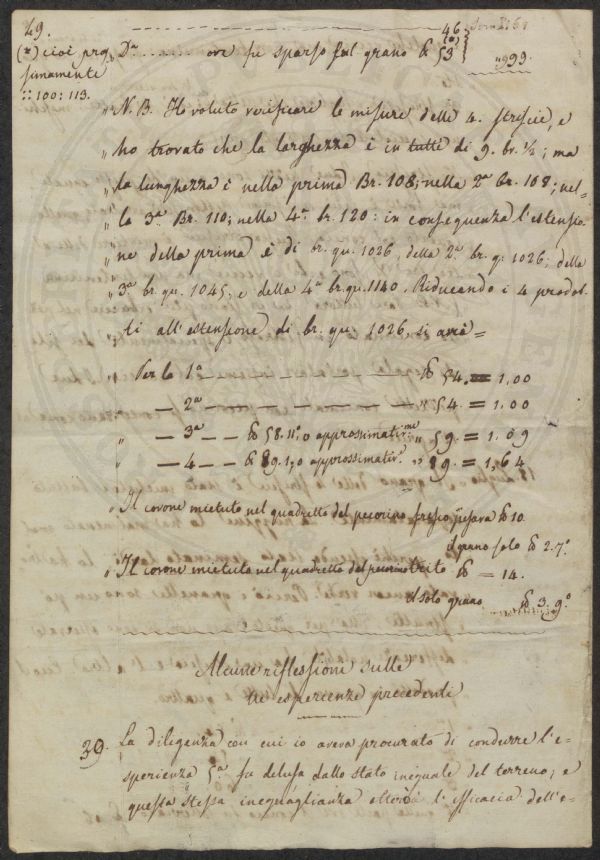 29.
46
(*) cioè pros D.ª ........ ove fu sparso sul grano ℔ 53 (*) } " 99.
simamente
:: 100: 113.
" N. B. Ho voluto verificare le misure delle 4. striscie, e
" ho trovato che la larghezza è in tutte di 9. br. ½; ma
" la lunghezza è nella prima Br. 108; nella 2.ª br. 108; nel-
" la 3.ª Br. 110; nella 4.ª br. 120: in conseguenza l'estensio-
" ne della prima è di br. qu. 1026, della 2.ª br. q. 1026; della
" 3.ª br. qu. 1045, e della 4.ª br. qu. 1140. Riducendo i 4 prodot-
" ti all'estensione di br. qu. 1026, si avrà =
Per la 1ª — — — — — — — ℔ 54. = 1,00
— 2ª — — — — — — — " 54. = 1,00
" — 3ª — — ℔ 58.11,0 approssimativ.me " 59. = 1,09
" — 4 — — ℔ 89.1,0 approssimativ.e " 89. = 1,64
" Il covone mietuto nel quadretto del pecorino fresco pesava ℔ 10
il grano solo ℔ 2.7.º
" Il covone mietuto nel quadretto del pecorino trito ℔ = 14.
il solo grano ℔ 3. 9.º
Alcune riflessioni sulle
tre esperienze precedenti
39. La diligenza con cui io aveva procurato di condurre l'e-
sperienza 5.ª fu delusa dallo stato ineguale del terreno; e
questa stessa ineguaglianza alterò l'efficacia dell'e-